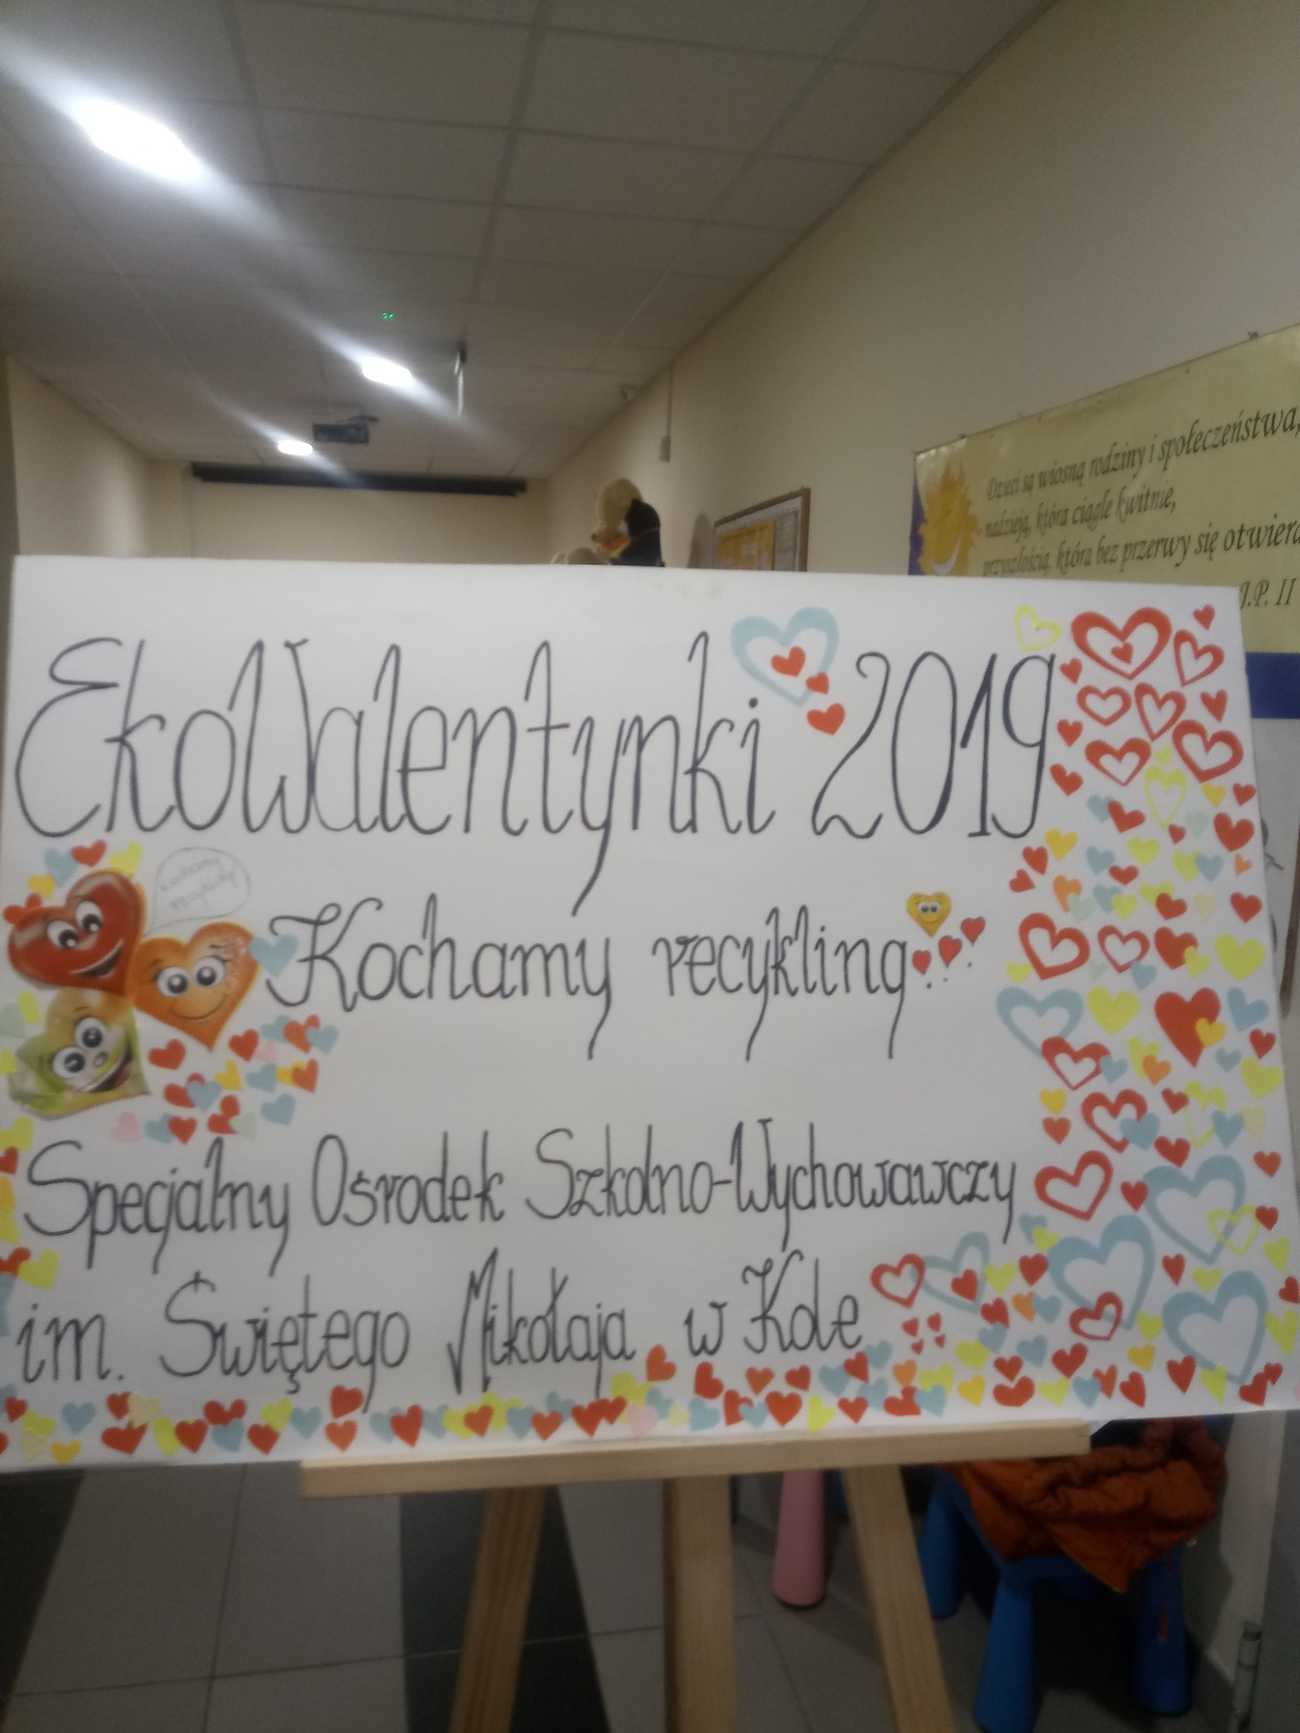 Dzieci są wiosną rodziny i społeczeństwa,
nadzieją, która ciągle kwitnie,
przyszłością, która bez przerwy się otwiera
J.P. II
EkoWalentynki 2019
Kochamy
Kochamy recykling!!!
Specjalny Ośrodek Szkolno-Wychowawczy
im. Świętego Mikołaja w Kole